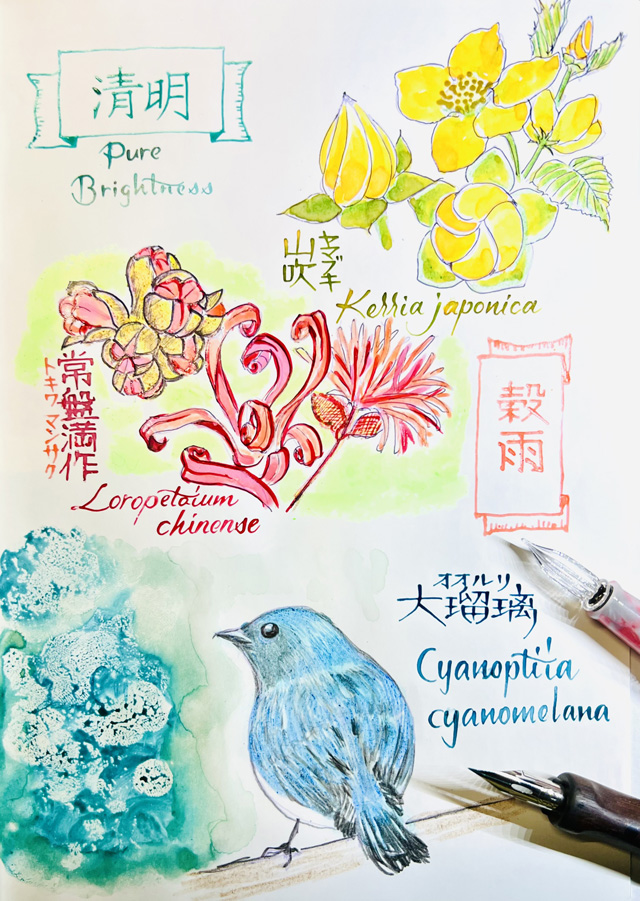 清明
Pure
Brightness
山吹
ヤマブキ
Kerria japonica
常盤満作
トキワマンサク
Loropetalum
chinense
穀雨
オオルリ
大瑠璃
Cyanoptila
cyanomelana